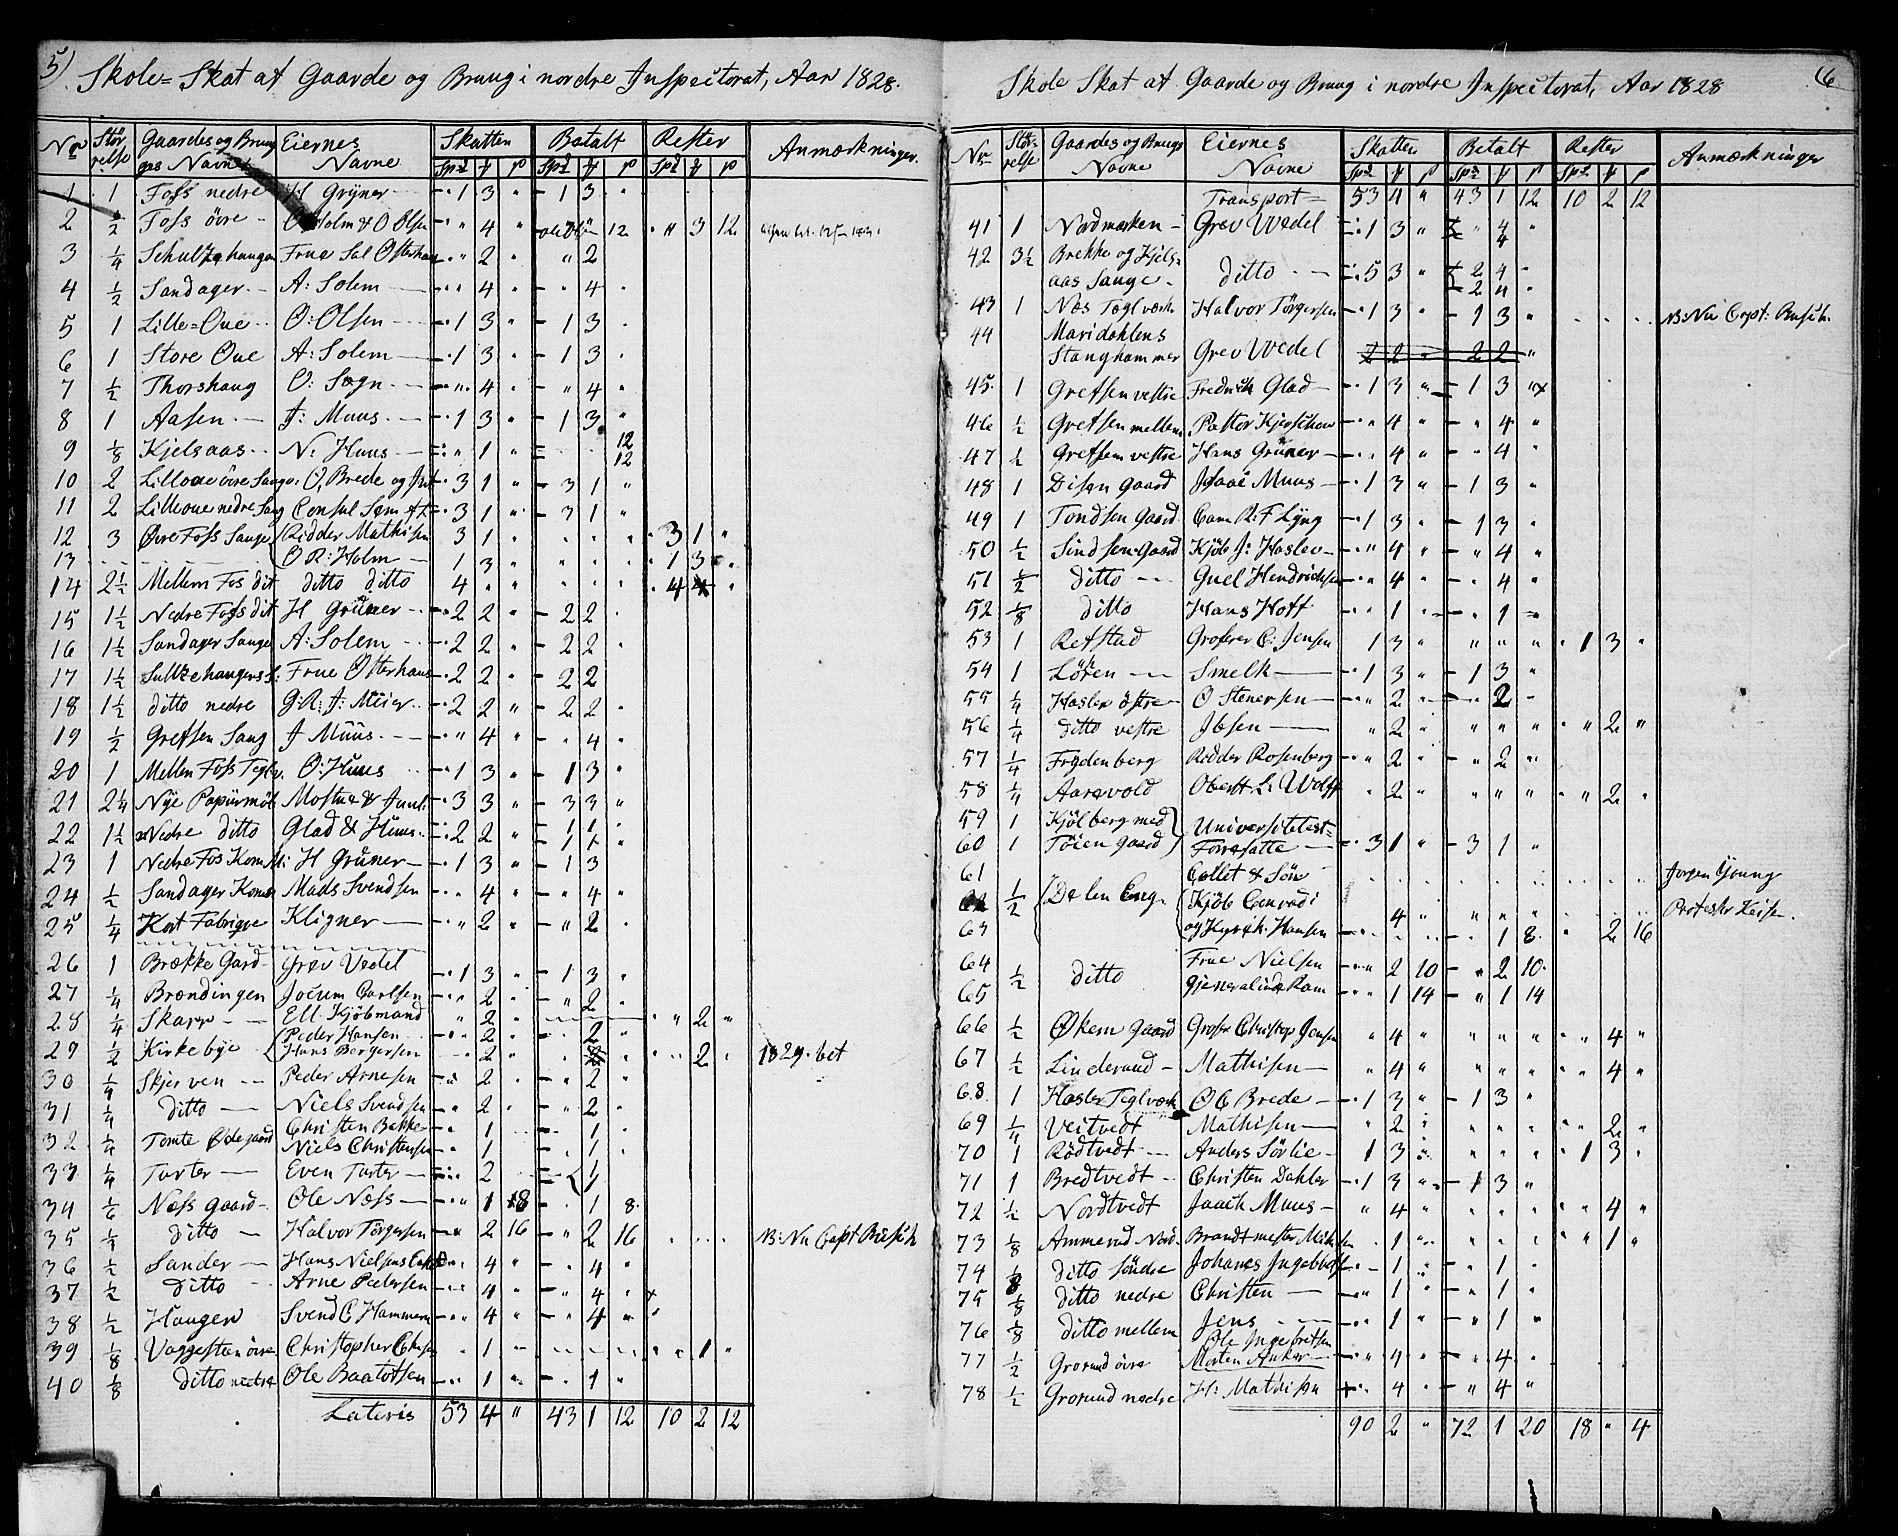 5)
Skole=Skat at Gaarde og Bruug i nordre Inspectorat, Aar 1828.
No Stör relse Gaardes og Bruugges Navne Eiernes Navne Skatten Betalt Rester Anmærkninger.
1 1 Foss nedre H Gryner 1 3 " 1 3
2 1/2 Foss övre O Holm & O Olsen " 4 " 12 " 3 12
3 1/4 Frue Sal 2 " " 2
4 1/2 Sandager A: Solem " 4 " " 4
5 1 Lille=Oue O: Olsen 1 3 " 1 3
6 1 Store Oue A: Solem 1 3 " 1 3
7 1/2 Thorshaug O: Sogn " 4 " " 4
8 1 Aasen J: Muus 1 3 " 1 3 "
9 1/8 Kjelsaas N: Huus " 1 " 12
12
10 2 Lilloue övre Sang O, Brede og 3 1 " 3 1 "
11 2 Lilleoue nedre Sang Consul 3 1 " 3 1 "
12 3 Övre Foss Sauge Ridder Mathisen 3 1 " " " " 3 1 "
13 O R: Holm 1 3 " " " " 1 3 "
14 2 1/2 Mellem Fos dit ditto ditto 4 " " " " " 4 4 "
15 1 1/2 Nedre Foss dit H Grüner 2 2 " 2 2
16 1 1/2 Sandager Sauge A: Solem 2 2 " 2 2
17 1 1/2 Frue Osterhaus 2 2 " 2 2
18 1 1/2 ditto nedre G. R: J: Meier 2 2 " 2 2
19 1/2 Grefsen Sang J Muus " 4 " 4
20 1 Mellem Foss Teglv. O: Huus 1 3 " 1 3 "
21 2 1/4 Nye Papiirmöl 3 3 " 3 3 "
22 1 1/2 Nedre ditto Glad & Huus 2 2 " 1 1
1 1
23 1 Nedre Fos Korn M: H Grüner 1 3 " 1 3
24 1/2 Sandager Korn Mads Svendsen " 4 " " 4
25 1/4 Kort Fabriqve Kligner " 2 " " 2
26 1 Brække Gard Grev Vedel 1 3 " 1 3
27 1/4 Brændingen Jocum Carlsen " 2 " " 2
28 1/4 Skarr Ell Kjöbmand " 2 " " 2 "
29 1/2 Kirkebye Peder Hansen " 2 " 2
Hans Bergersen 2 2 " 2 1829. bet
30 1/4 Skjerven Peder Arnesen " 2 " 2
31 1/4 ditto Niels Svendsen " 2 " " 2
32 1/4 Tomte Ödegaard Christen Bakke 1 1
Niels Christensen 1 1
33 1/4 Tarter Even Tarter 2 1
34 1/6 Næss Gaard Ole Næss " 1 8 1 8
35 1/3 ditto Halvor Törgersen " 2 16 " 2 16 NB: Nu Capt Busch
36 1/2 Sander Hans Nielsens 4 " 4
37 1/2 ditto Arne Pedersen 4 " " 4
38 1/2 Haugen Svend C Hammeren " 4 " " 4 "
39 1/8 Christopher 1 1 "
40 1/8 ditto nedre Ole 1 " 1 "
Lateris 53 4 " 43 1 12 10 2 12
6
Skole Skat at Gaarde og Bruug i nordre Inspectorat, Aar 1828
Nr Stör relse Gaardes og Bruugs Navne Eiernes Navne Skatten Betalt Rester Anmærkninger
Transport 53 4 " 43 1 12 10 2 12
41 1 Nordmarken Grev Wedel 1 3 " " 4
4
42 3 1/2 Brekke og Kjelsaas Sauge ditto 5 3 " 2 4
2 4
43 1 Næs Teglværk Halvor Törgersen 1 3 " 1 3 " NB: Nu Capt: Busch.
44 Maridahlens Stanghammer Grev Wedel 2 2 " 2 2 "
45 1 Grefsen vestre Fredrich Glad 1 3 " 1 3 "
46 1/2 Grefsen mellem Pastor Kjerschow " 4 " " 4 "
47 1/2 Grefsen vestre Hans Grüner " 4 " " 4 "
48 1 Disen Gaard Isaac Muus 1 3 " 1 3 "
49 1 Tondsen Gaard Cam R: F Lyng 1 3 " 1 3
50 1/2 Sindsen Gaard Kjöb J: Haslev " 4 " " 4 "
51 1/2 ditto Hendrichsen " 4 " " 4 "
52 1/8 ditto Hans Hoff " 1 " " 1
53 1 Refstad Grosserer C: Jensen 1 3 " " " " 1 3
54 1 Lören Smelk 1 3 " 1 3
55 1/4 Hasler östre O Stenersen " 2 " " 2
56 1/4 ditto vestre Ibsen " 2 " " " " " 2 "
57 1/4 Frydenberg Ridder Rosenberg " 2 " 2 "
58 1/4 Aarevold Oberst L: Wolff " 2 " " " " " 2
59 1 Kjölberg med Universitetet
60 1 Töien Gaard 3 1 " 3 1 "
61 Collet & Sön Jorgen Young
1/2 De len Eng Kjöb Conradi 4 " " " " Professor Keiser.
63 og Hansen 1 8 " 2 16
64 1/2 ditto Frue Nielsen " 2 10 " 2 10
65 Ram " 1 14 " 1 14
66 1/2 Økern Gaard Gross Christop Jensen " 4 " " " " " 4 "
67 1/2 Linderud Mathisen " 4 " " " " " 4 "
68 1 Hasler Teglværk OC Brede 1 3 " 1 3
69 1/4 Veitvedt Mathisen " 2 " " " " 2
70 1 Rödtvedt Anders Sörlie 1 3 " " " " 1 3
71 1 Bredtvedt Christen Dahler 1 3 " 1 3 "
72 1/2 Nordtvedt Isaach Muus " 4 " " " " " 4 "
73 1/8 Ammerud Nord. Brandtmester 1 " " " " " 1 "
74 ditto söndre Johanes 1 " 1
75 1/8 ditto nedre Christen " 1 " 1
76 1/8 ditto mellem Jens 1 " " 1 "
Ole Ingebretsen
77 1/2 Grorud övre Morten Anker " 4 " 4
78 1/2 Grorud nedre H: Mathisen 4 " 4 "
90 2 " 72 1 20 18 " 4